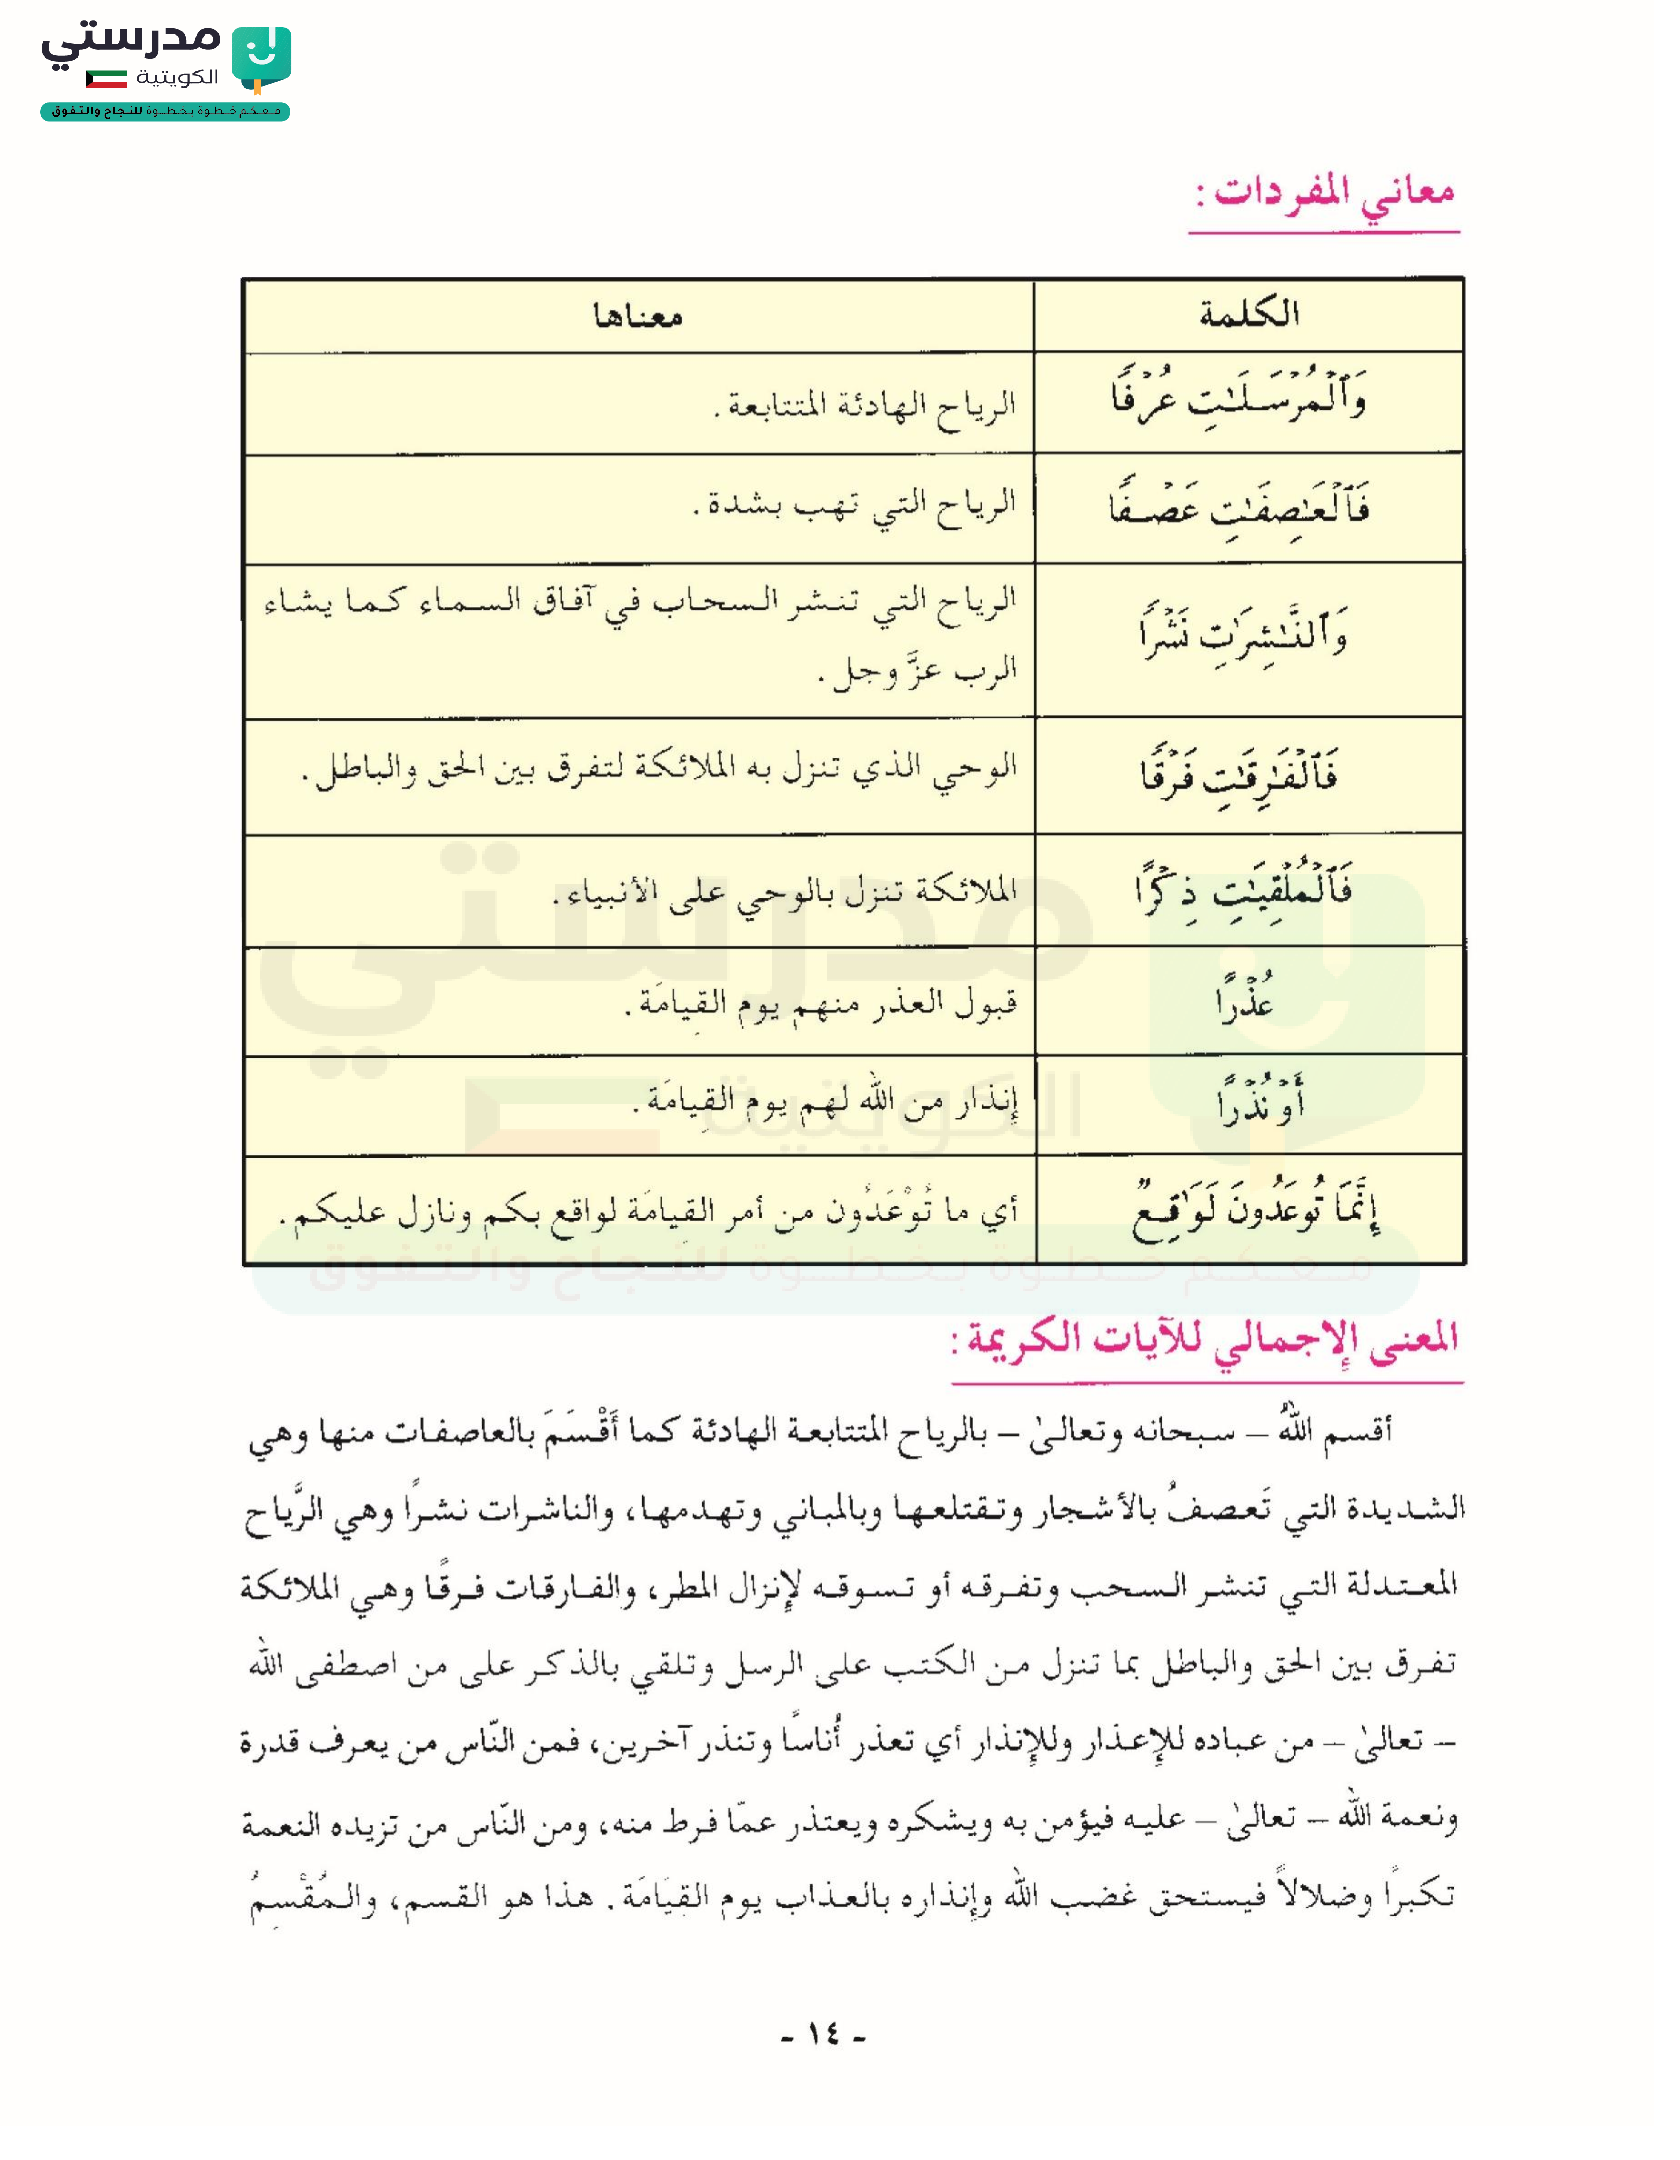 مدرستي
الكويتية
معكم خطوة بخطوة للنجاح والتفوق
معاني المفردات :
الكلمة معناها
وَٱلْمُرْسَلَٰتِ عُرْفًا الرياح الهادئة المتتابعة .
فَٱلْعَٰصِفَٰتِ عَصْفًا الرياح التي تهب بشدة .
وَٱلنَّٰشِرَٰتِ نَشْرًا الرياح التي تنشر السحاب في آفاق السماء كما يشاء
الرب عزَّ وجل .
فَٱلْفَٰرِقَٰتِ فَرْقًا الوحي الذي تنزل به الملائكة لتفرق بين الحق والباطل .
فَٱلْمُلْقِيَٰتِ ذِكْرًا الملائكة تنزل بالوحي على الأنبياء .
عُذْرًا قبول العذر منهم يوم القِيامَة .
أَوْ نُذْرًا إنذار من الله لهم يوم القِيامَة .
إِنَّمَا تُوعَدُونَ لَوَٰقِعٌ أي ما تُوْعَدُون من أمر القِيامَة لواقع بكم ونازل عليكم .
مدرستي
الكويتية
معكم خطوة بخطوة للنجاح والتفوق
المعنى الإجمالي للآيات الكريمة :
أقسم اللهُ – سبحانه وتعالىٰ – بالرياح المتتابعة الهادئة كما أَقْسَمَ بالعاصفات منها وهي
الشديدة التي تَعصفُ بالأشجار وتقتلعها وبالمباني وتهدمها، والناشرات نشرًا وهي الرَّياح
المعتدلة التي تنشر السحب وتفرقه أو تسوقه لإنزال المطر، والفارقات فرقًا وهي الملائكة
تفرق بين الحق والباطل بما تنزل من الكتب على الرسل وتلقي بالذكر على من اصطفى الله
– تعالىٰ – من عباده للإعذار وللإنذار أي تعذر أُناسًا وتنذر آخرين، فمن النّاس من يعرف قدرة
ونعمة الله – تعالىٰ – عليه فيؤمن به ويشكره ويعتذر عمّا فرط منه، ومن النّاس من تزيده النعمة
تكبرًا وضلالاً فيستحق غضب الله وإنذاره بالعذاب يوم القِيَامَة . هذا هو القسم، والمُقْسِمُ
- ١٤ -